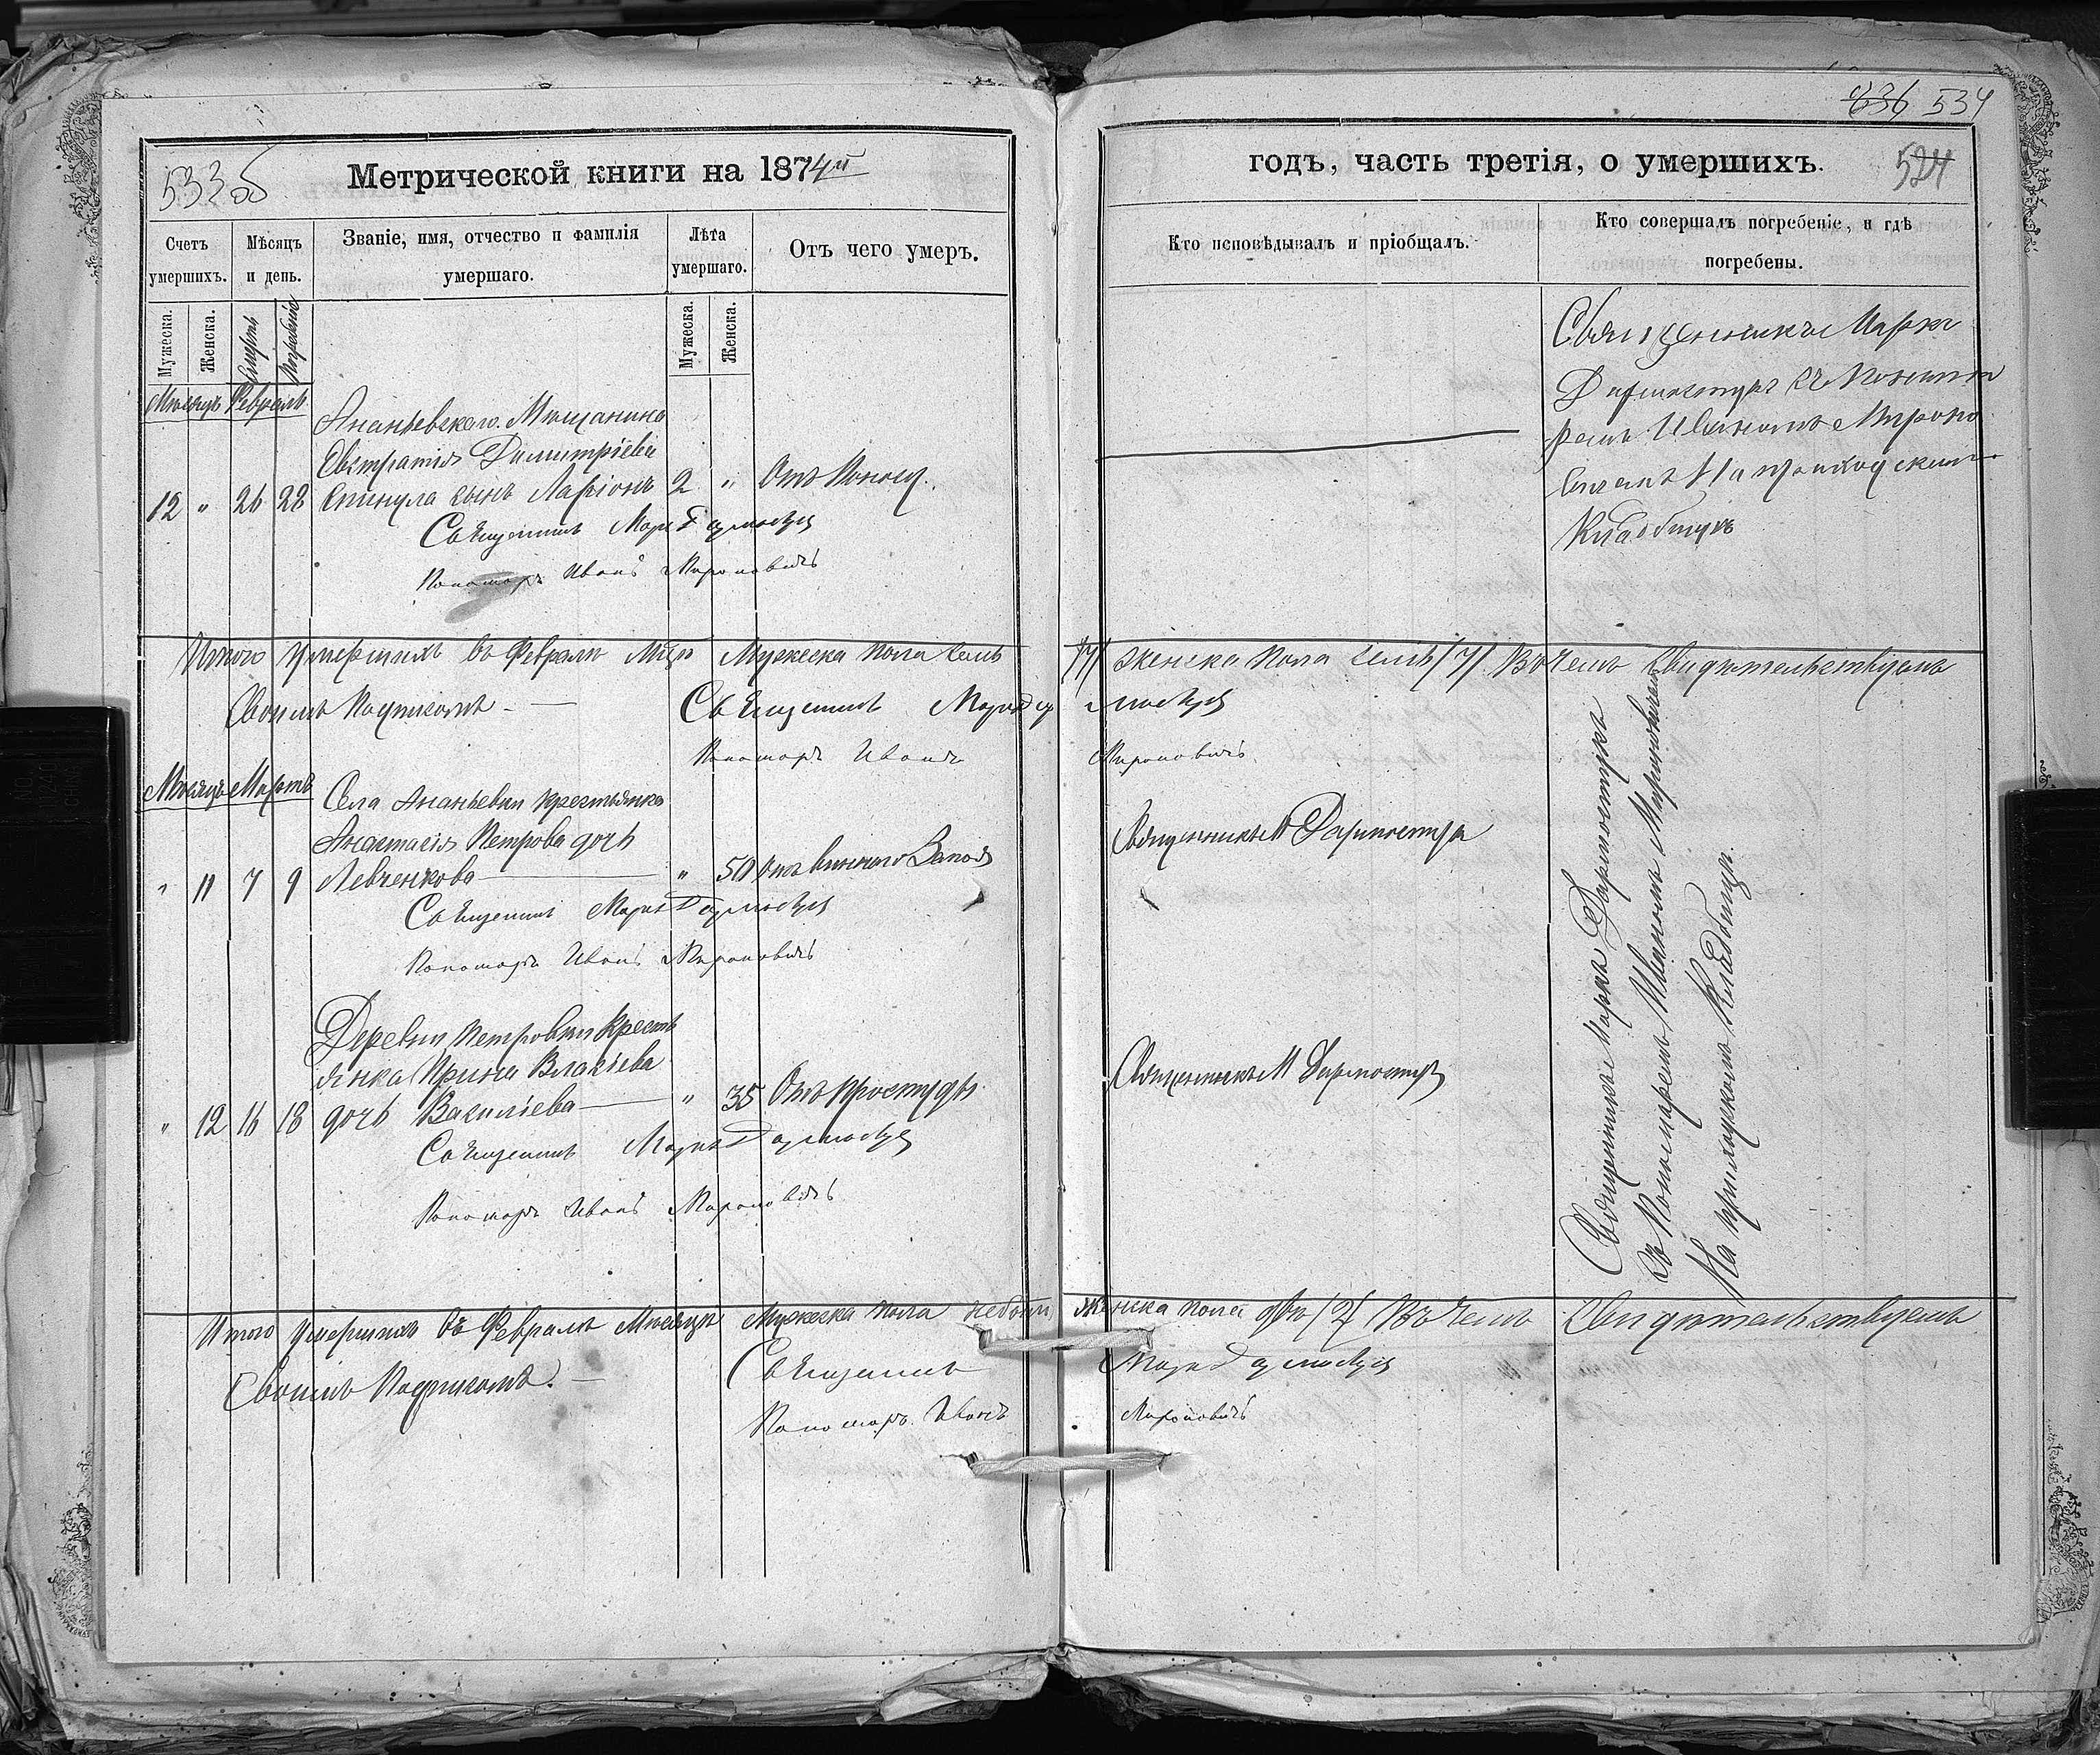 533 об
Метрической книги на 1874й
Счетъ умершихъ.
Мѣсяцъ и день.
Званіе, имя, отчество и фамилія умершаго.
Лѣта умершаго.
Отъ чего умеръ.
Мужеска.
Женска.
Смерть
Погребенія
Мужеска.
Женска.
Мѣсяцъ Февраль
Ананьевскаго Мѣщанина
Евстратія Димитріева
12 " 26 28 сынъ Ларіонъ 2 " Отъ Поноса.
Священникъ Марк Дармостук
Пономарь Иванъ Мироновичъ
Итого умершихъ въ Февралѣ М-цѣ Мужеска пола
Своимъ Подписомъ
Священникъ Марк
Пономарь Иванъ
Мѣсяцъ Мартъ
Села Ананьевки крестьянка
Анастасія Петрова дочь
" 11 7 9 Левченкова " 50 Отъ виннаго Запоя
Священникъ Марк Дармостук
Пономарь Иванъ Мироновичъ
Деревни Петровки Кресть
янка Ирина Власіева
" 12 16 18 дочь Василіева " 35 Отъ Простуды
Священникъ Марк Дармостук
Пономарь Иванъ Мироновичъ
Итого умершихъ въ Февралѣ Мѣсяцѣ Мужеска пола небыло
Своимъ Подписомъ.
Священникъ
Пономарь Иванъ
636 534
годъ, часть третія, о умершихъ.
524
Кто исповѣдывалъ и пріобщалъ.
Кто совершалъ погребеніе, и гдѣ погребены.
Священникъ Маркъ
съ Понома
ремъ Иваномъ Мироно
вичемъ На приходскомъ
Кладбищѣ
/7/ женска пола семь /7/ Въ чемъ свидѣтельствуемъ
Мироновичъ
Священникъ М
Священникъ М
Священникъ Маркъ
съ Пономаремъ Иваномъ Мироновичемъ
На приходскомъ Кладбищѣ.
женска пола двѣ /2/ Въ чемъ свидѣтельствуемъ
Марк
Мироновичъ